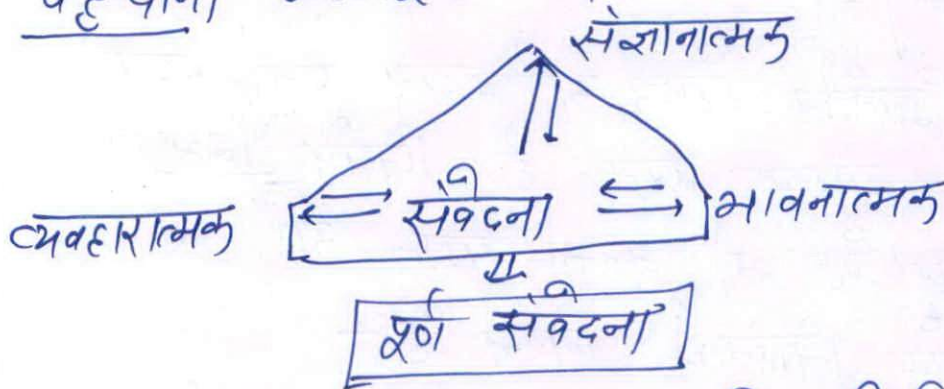 संज्ञानात्मक
व्यवहारात्मक संवेदना भावनात्मक
पूर्ण संवेदना